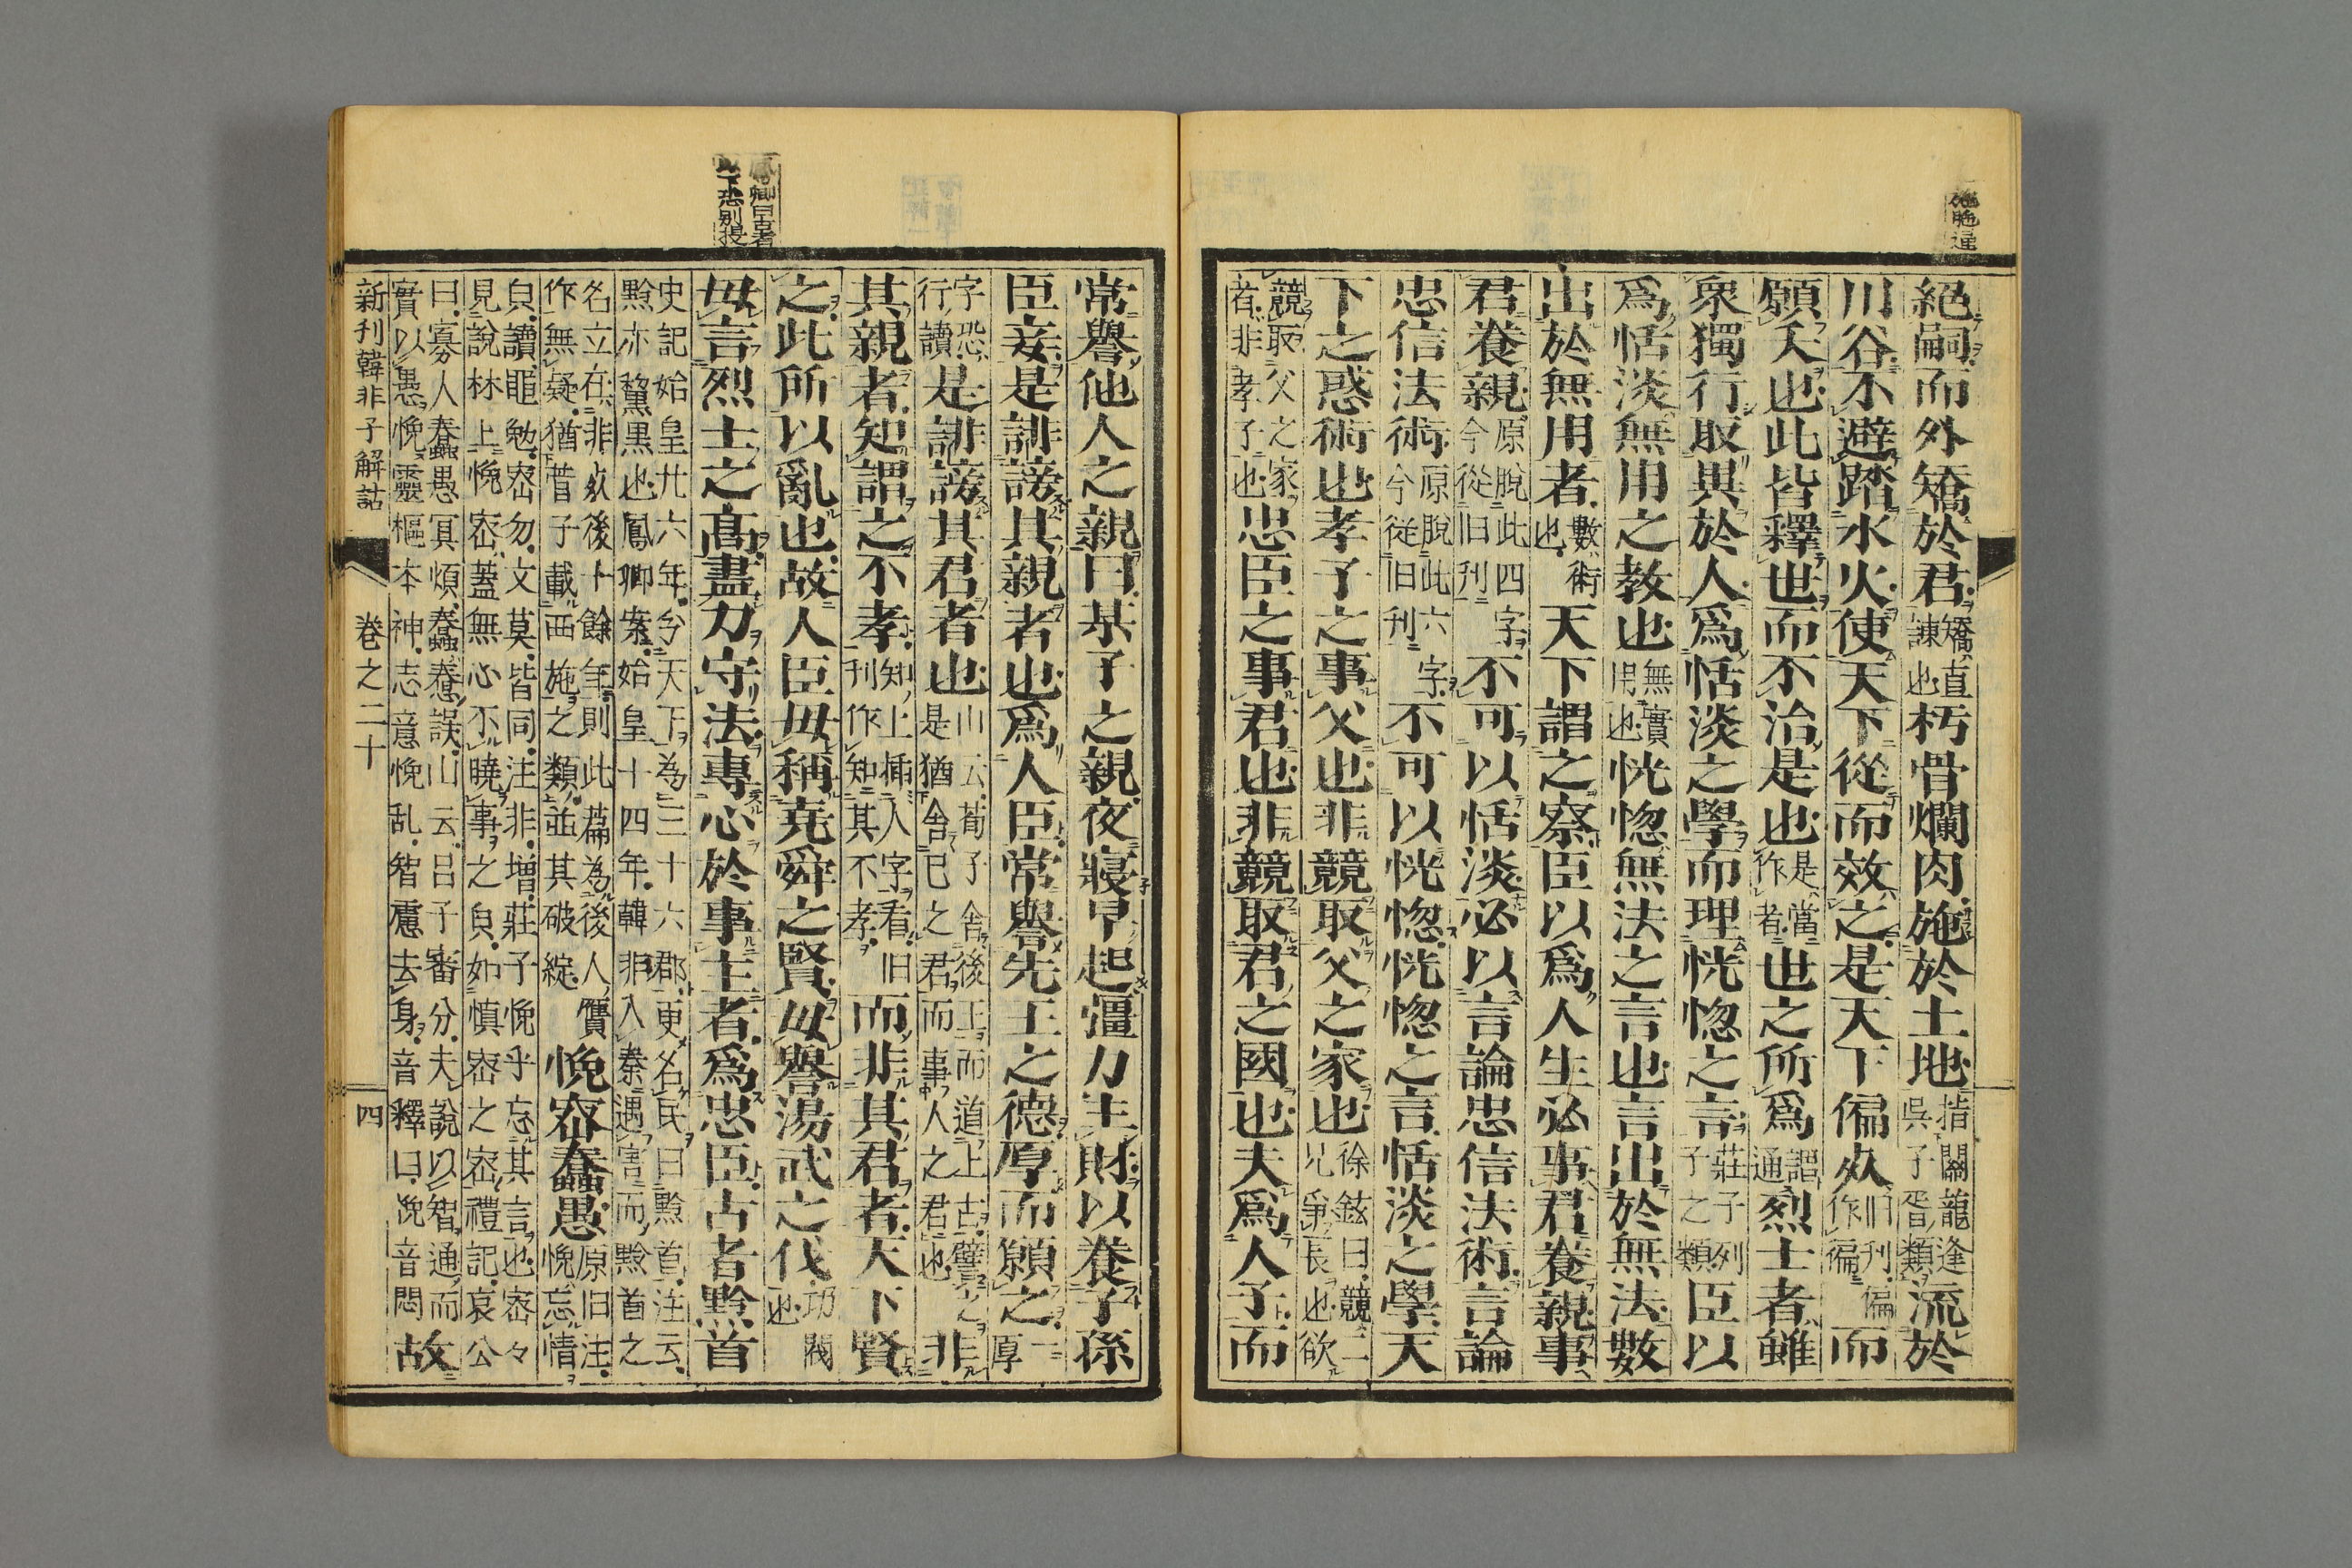 施貤逞
絕嗣而外矯於君矯直諫也朽骨爛肉施於土地指關龍逢吳子胥類流於
川谷不避蹈水火使天下從而效之是天下偏㱙旧刊偏作徧而
願夭也此皆釋世而不治是也是當作者世之所爲謂通烈士者雖
衆獨行取異於人爲恬淡之學而理恍惚之言莊子列子之類臣以
爲恬淡無用之教也無實用也恍惚無法之言也言出於無法數
出於無用者數術也天下謂之察臣以爲人生必事君養親事
君養親原脫此四字今從旧刊不可以恬淡必以言論忠信法術言論
忠信法術原脫此六字今從旧刊不可以恍惚恍惚之言恬淡之學天
下之惑術也孝子之事父也非競取父之家也徐鉉曰競二兄爭長也欲
競取父之家者非孝子也忠臣之事君也非競取君之國也夫爲人子而
常譽他人之親曰某子之親夜寢早起彊力生財以養子孫
臣妾是誹謗其親者也爲人臣常譽先王之德厚而願之二厚
字恐行讀是誹謗其君者也山云荀子舍後王而道上古譬之是猶舍已之君而事人之君也非
其親者知謂之不孝知上插人字看旧刊作知其不孝而非其君者天下賢
之此所以亂也故人臣毋稱堯舜之賢毋譽湯武之伐功閥也
毋言烈士之高盡力守法專心於事主者爲忠臣古者黔首
史記始皇廿六年分天下為三十六郡更名民曰黔首注云黔亦黧黑也鳳卿案始皇十四年韓非入秦遇害而黔首之
名立在非㱙後十餘年則此篇為後人贋作無疑猶晋子載西施之類並其破綻悗宻蠢愚原旧注悗忘情
皃讀黽勉宻勿文莫皆同注非增莊子悗乎忘其言也宻々見說林上悗宻蓋無心不曉事之皃如慎宻之宻禮記哀公
曰寡人蠢愚冥煩蠢惷誤山云吕子審分夫說以智通而實以愚悗靈樞本神志意悗乱智慮去身音釋曰悗音悶故
新刊韓非子解詁　卷之二十　四